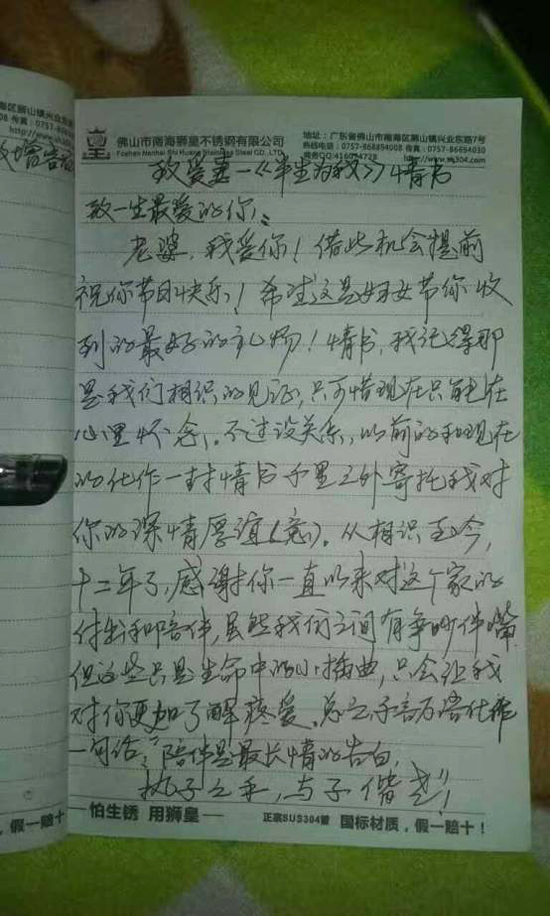 佛山市南海狮皇不锈钢有限公司
Foshan Nanhai Shi Huang Stainless Steel CO.,LTD
地址：广东省佛山市南海区狮山镇兴业东路7号
热线电话：0757-86885408 传真：0757-86694030
致爱妻—《半星为我》情书
致一生最爱的你：
老婆，我爱你！借此机会提前
祝你节日快乐！希望这是妇女节你收
到的最好的礼物！情书，我记得那
是我们相识的见证，只可惜现在只能在
心里怀念，不过没关系，以前的和现在
的化作一封情书千里之外寄托我对
你的深情厚谊（意）。从相识至今，
十二年了，感谢你一直以来对这个家的
付出和陪伴，虽然我们之间有争吵伴嘴
但这些只是生命中的小插曲，只会让我
对你更加了解疼爱。总之，千言万语化作
一句话，“陪伴是最长情的告白，
执子之手，与子偕老”！
怕生锈 用狮皇
正宗SUS304管
国标材质，假一赔十！
，假一赔十！